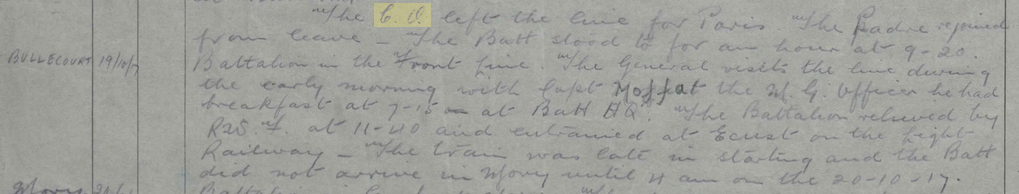 The C.O. left the line for Paris. The Padre rejoined
from leave - The Batt stood to for an hour at 9-20.
BULLECOURT 19/10/17 Battalion in the Front Line. The General visits the line during
the early morning with Capt Moffat the M.G. Officer he had
breakfast at 7-15 at Batt HQ. The Battalion relieved by
R.S.F. at 11-40 and entrained at Ecust on the Light
Railway - The train was late in starting and the Batt
did not arrive in Mory until 4 am on the 20-10-17.
Mory